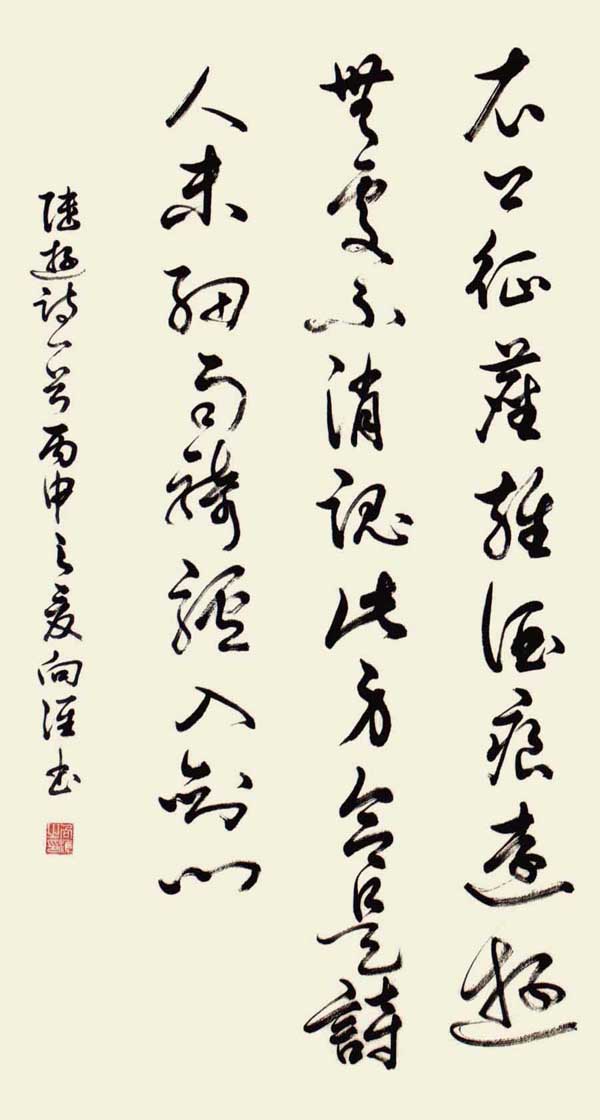 衣上征塵雜酒痕遠遊
無處不消魂此身合是詩
人未細雨騎驢入劍門
陸遊詩一首丙申之夏向書